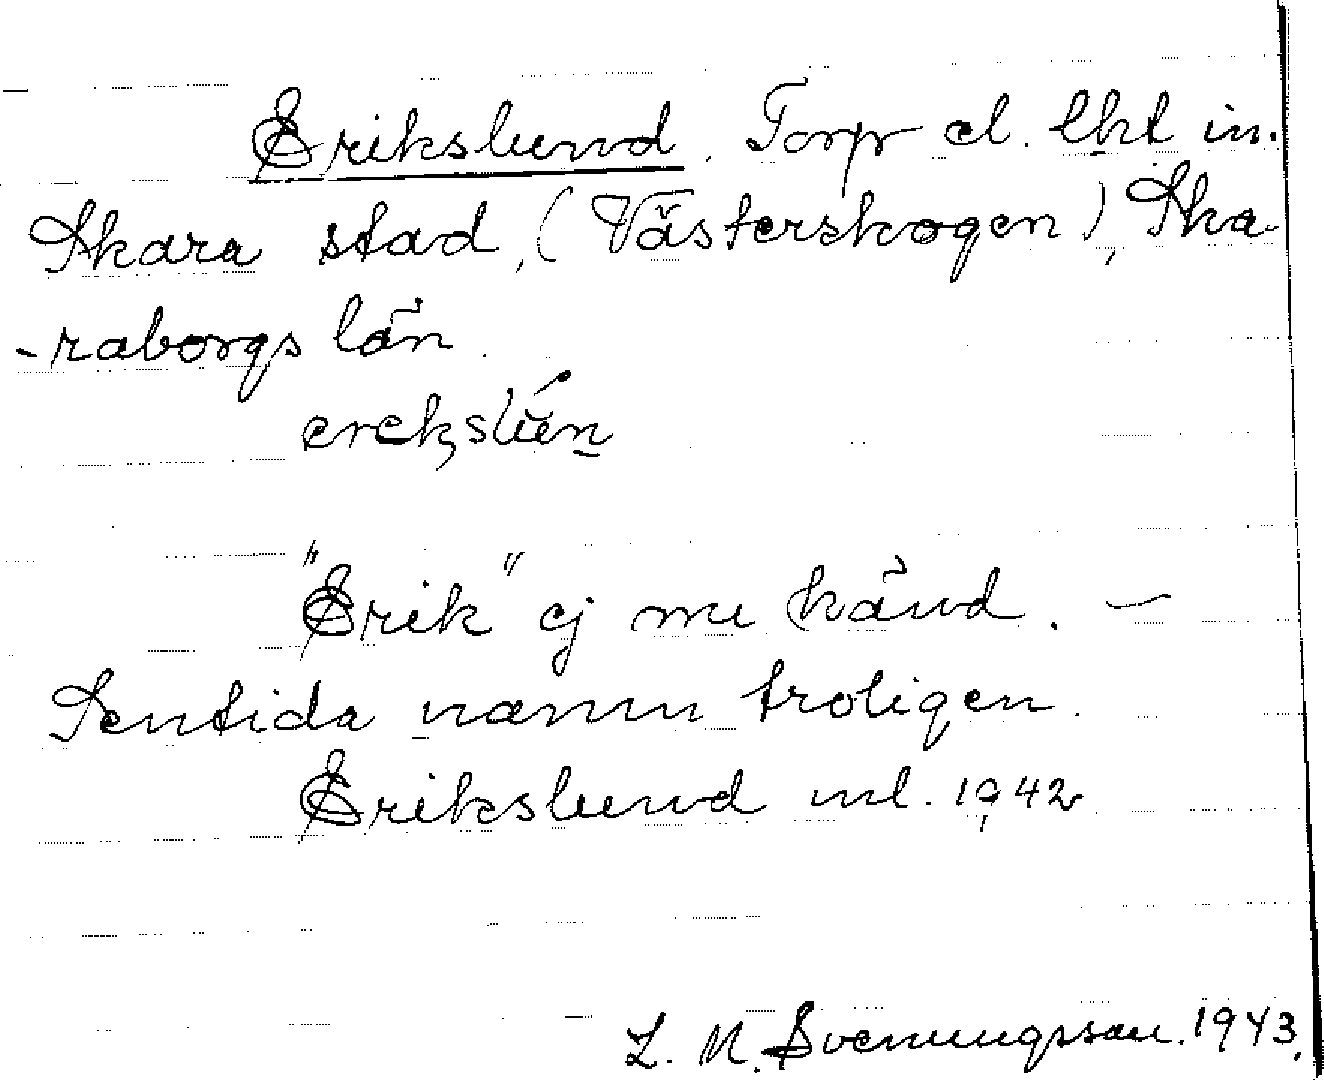 Erikslund. Torp el. lht in.
Skara stad, (Västerskogen), Ska-
-raborgs län.
"Erik" ej mu känd. —
Sentida namn troligen.
Erikslund ml. 1942
L. M. Svenungsson. 1943.